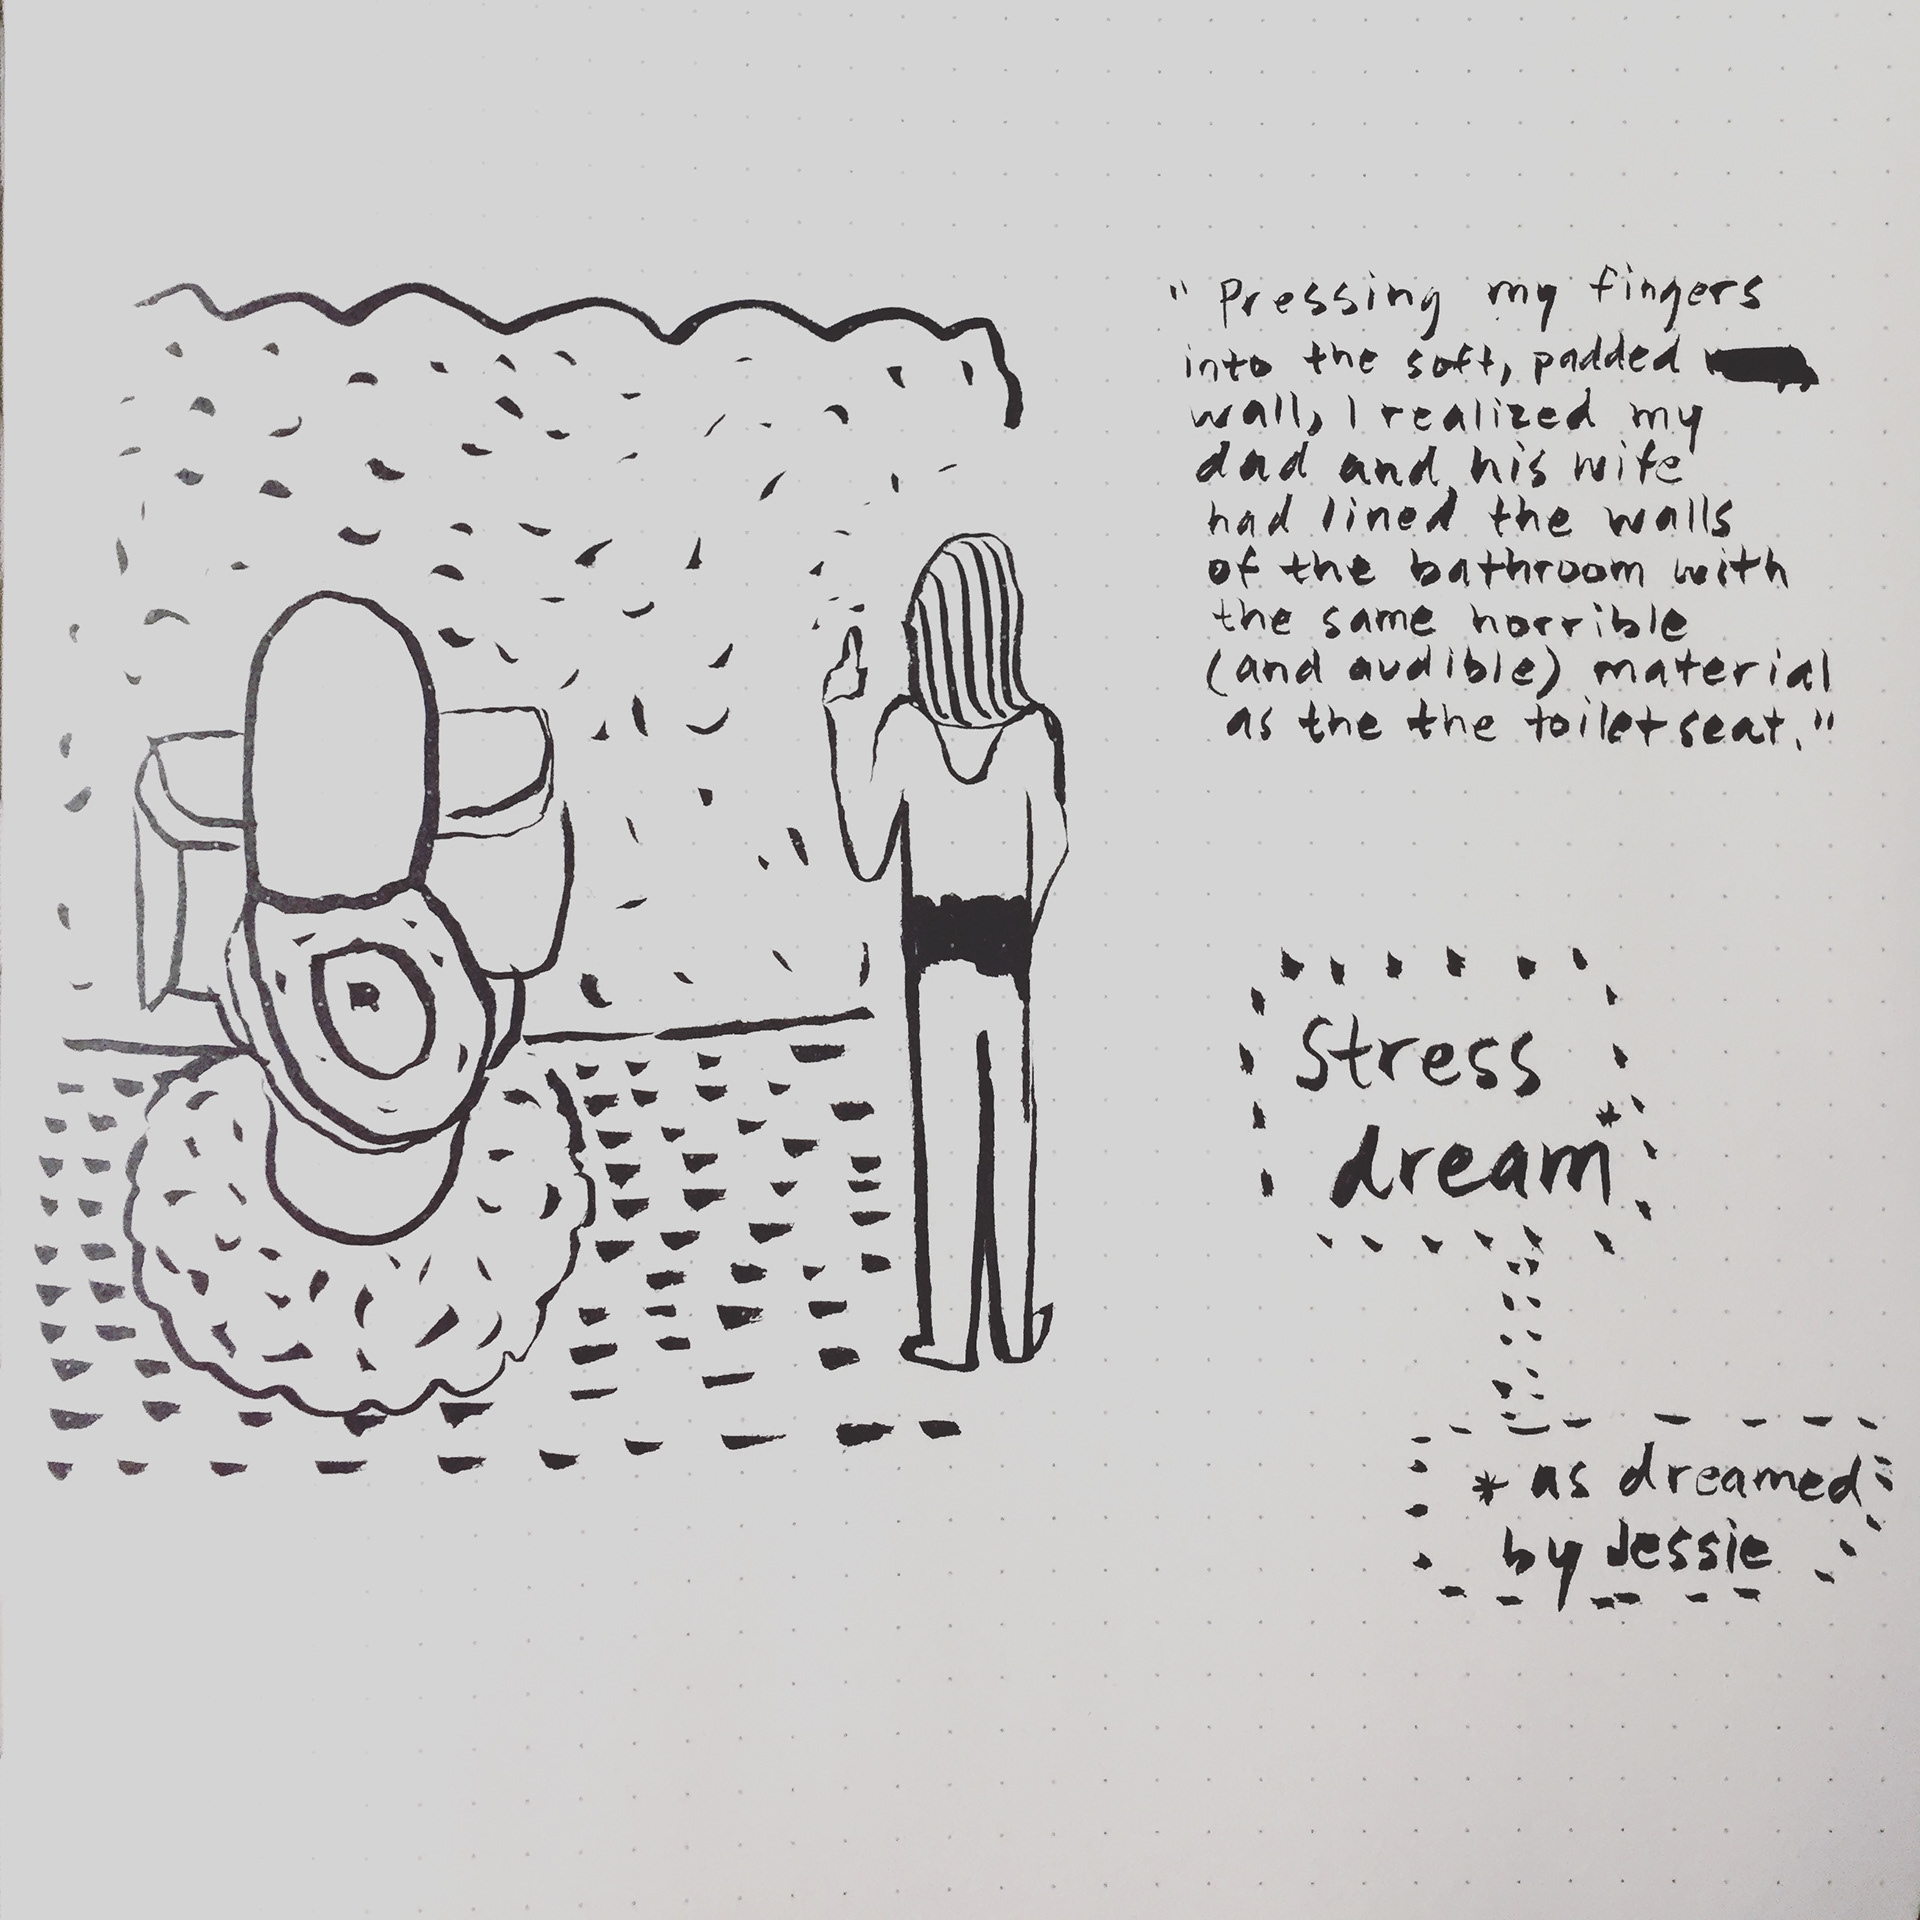 "Pressing my fingers
into the soft, padded
wall, I realized my
dad and his wife
had lined the walls
of the bathroom with
the same horrible
(and audible) material
as the the toilet seat."
Stress
dream*
* as dreamed
by Jessie